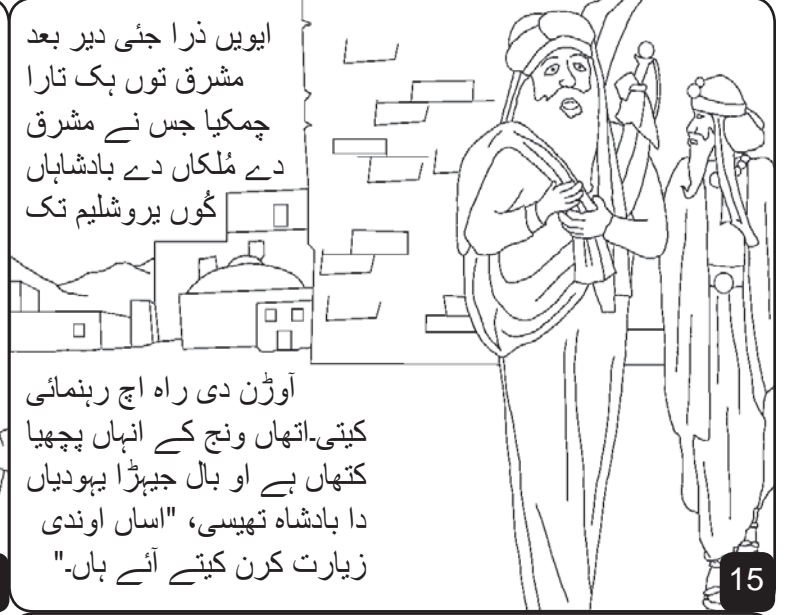 ایویں ذرا جئی دیر بعد
مشرق توں ہک تارا
چمکیا جس نے مشرق
دے مُلکاں دے بادشاہاں
کُوں یروشلیم تک
آوڑن دی راہ اچ رہنمائی
کیتی۔اتھاں ونج کے انہاں پچھیا
کتھاں ہے او بال جیہڑا یہودیاں
دا بادشاہ تھیسی، "اساں اوندی
زیارت کرن کیتے آئے ہاں۔"
15